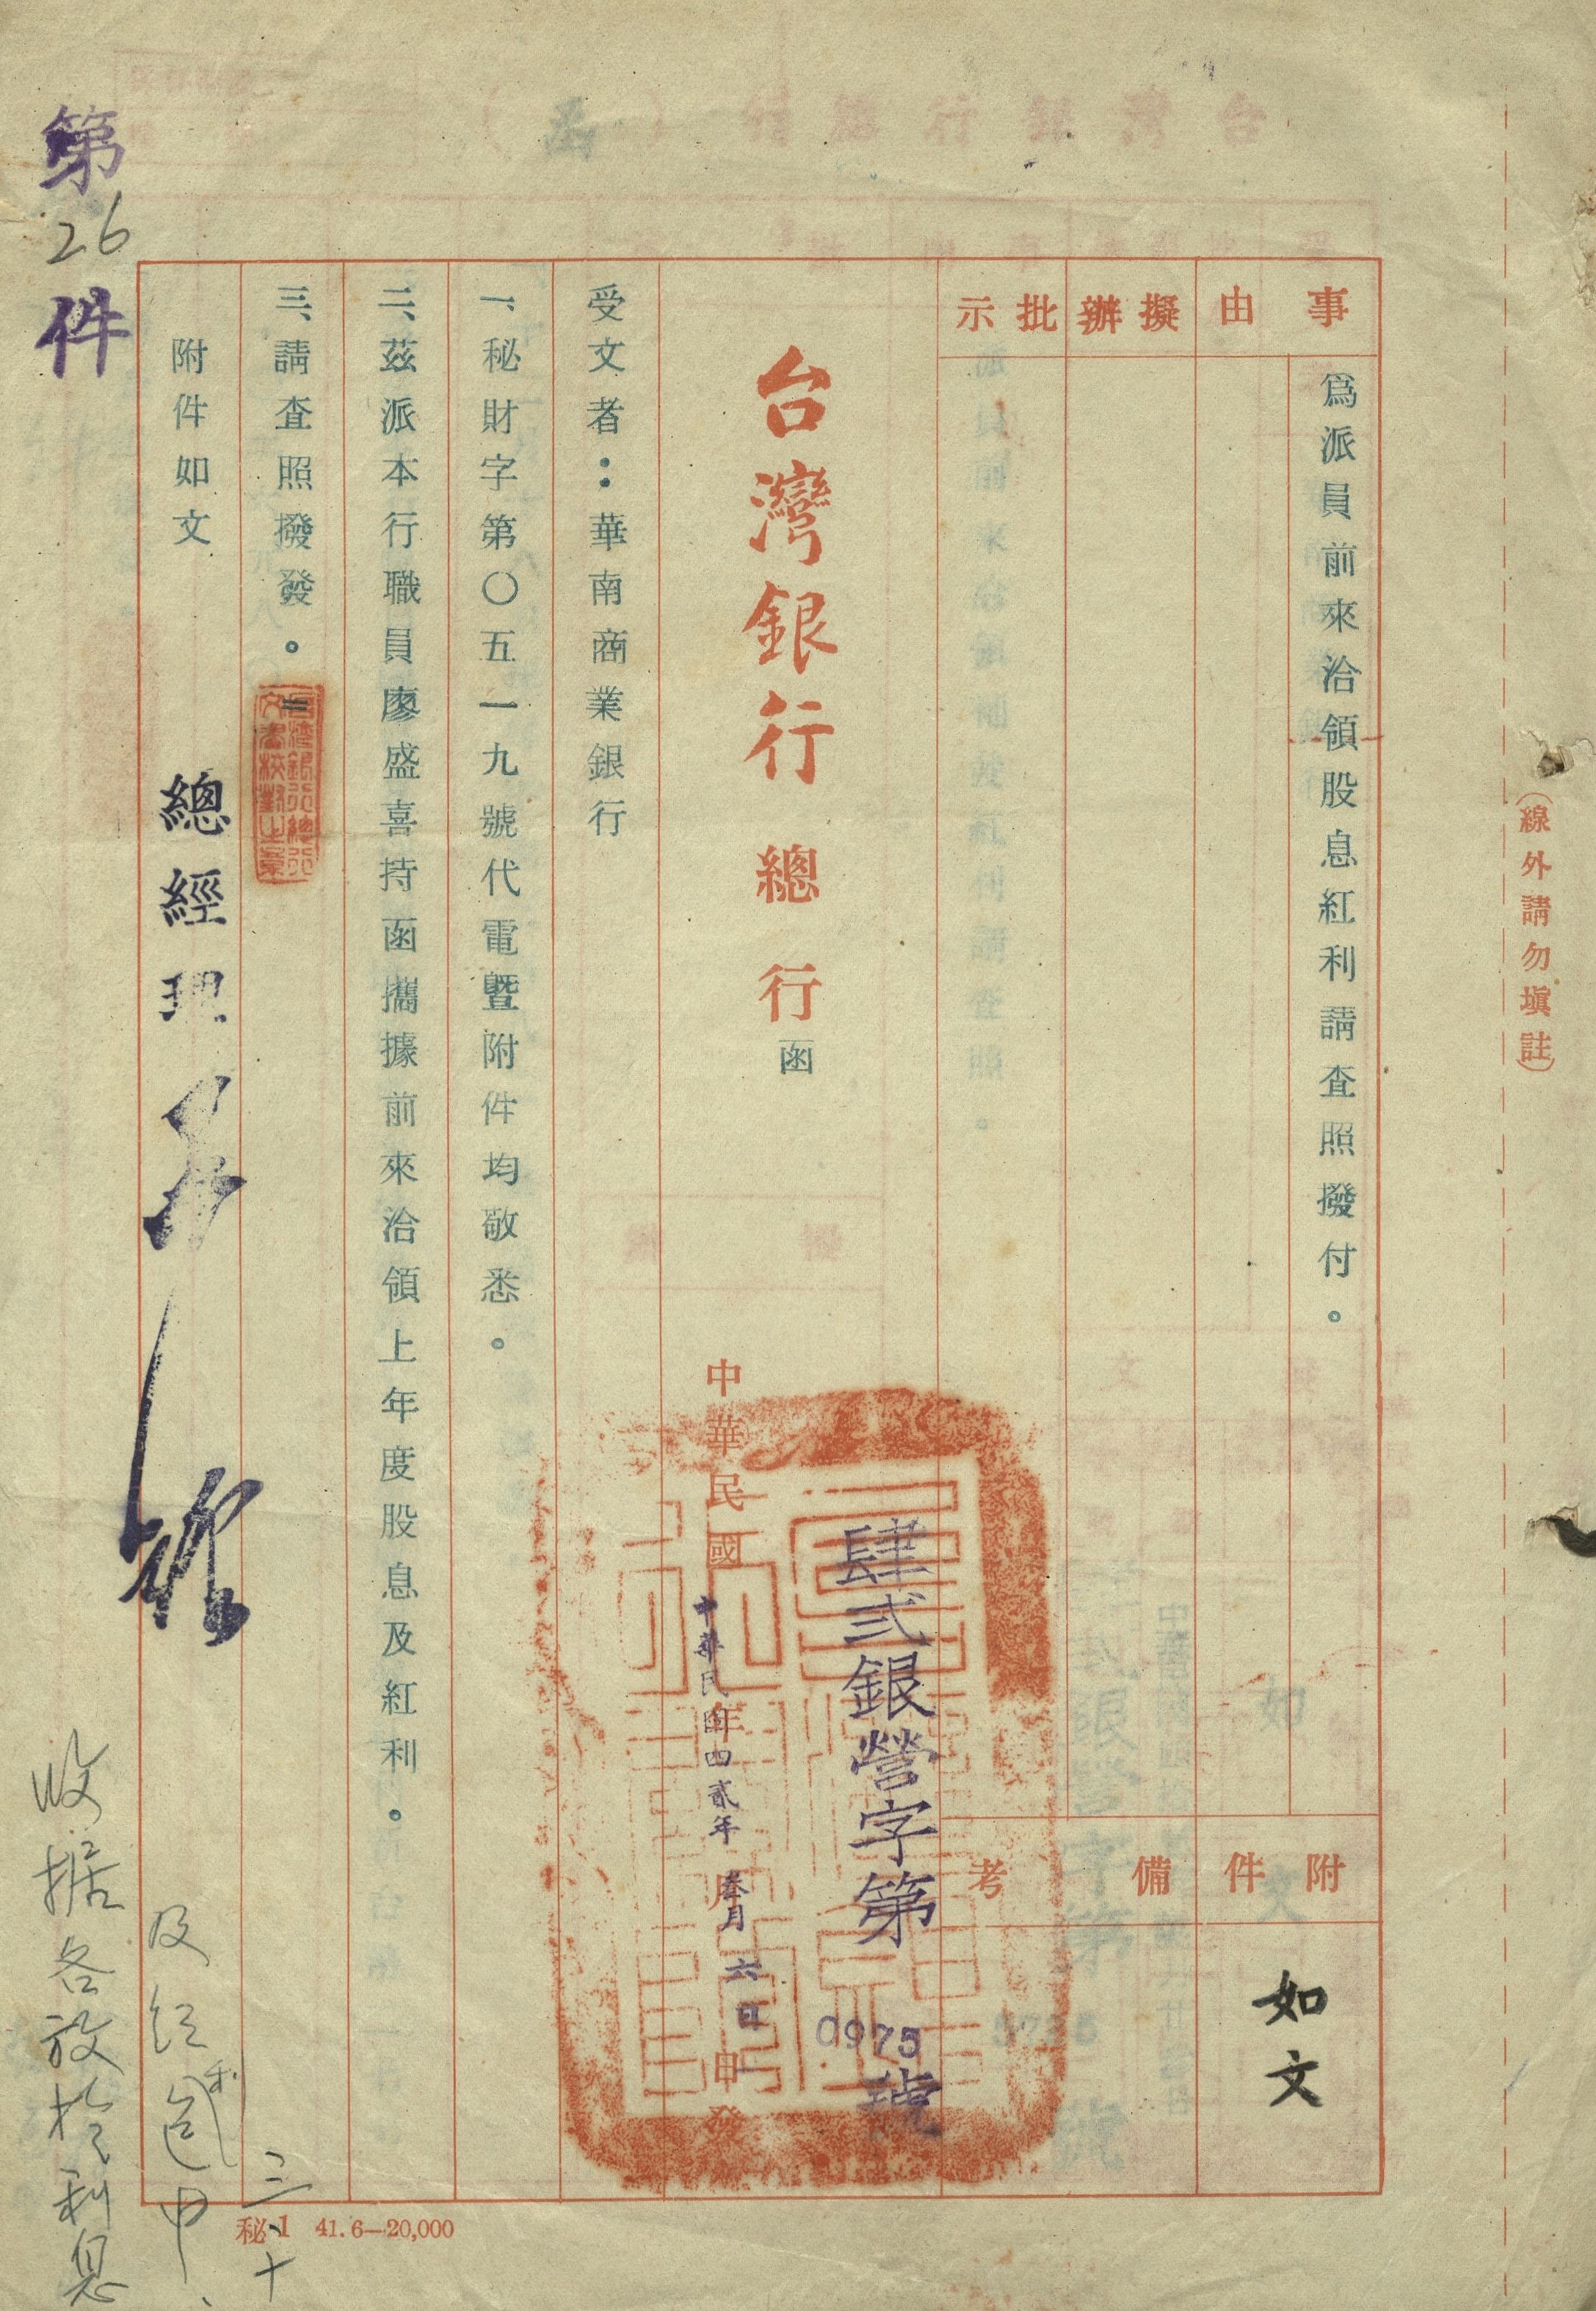 （線外請勿填註）
事由
為派員前來洽領股息紅利請查照撥付。
附件
如文
擬辦
批示
備考
台灣銀行總行函
肆弍銀營字第0975號
中華民國 年 月 日 申發
中華民國四貳年 叁月 六日
受文者：華南商業銀行
一、秘財字第〇五一九號代電暨附件均敬悉。
二、茲派本行職員廖盛喜持函攜據前來洽領上年度股息及紅利。
三、請查照撥發。
台灣銀行總行
文書校對之章
附件如文
總經理
第26件
收据各放於利息
及紅利
三、十
秘1 41.6—20,000